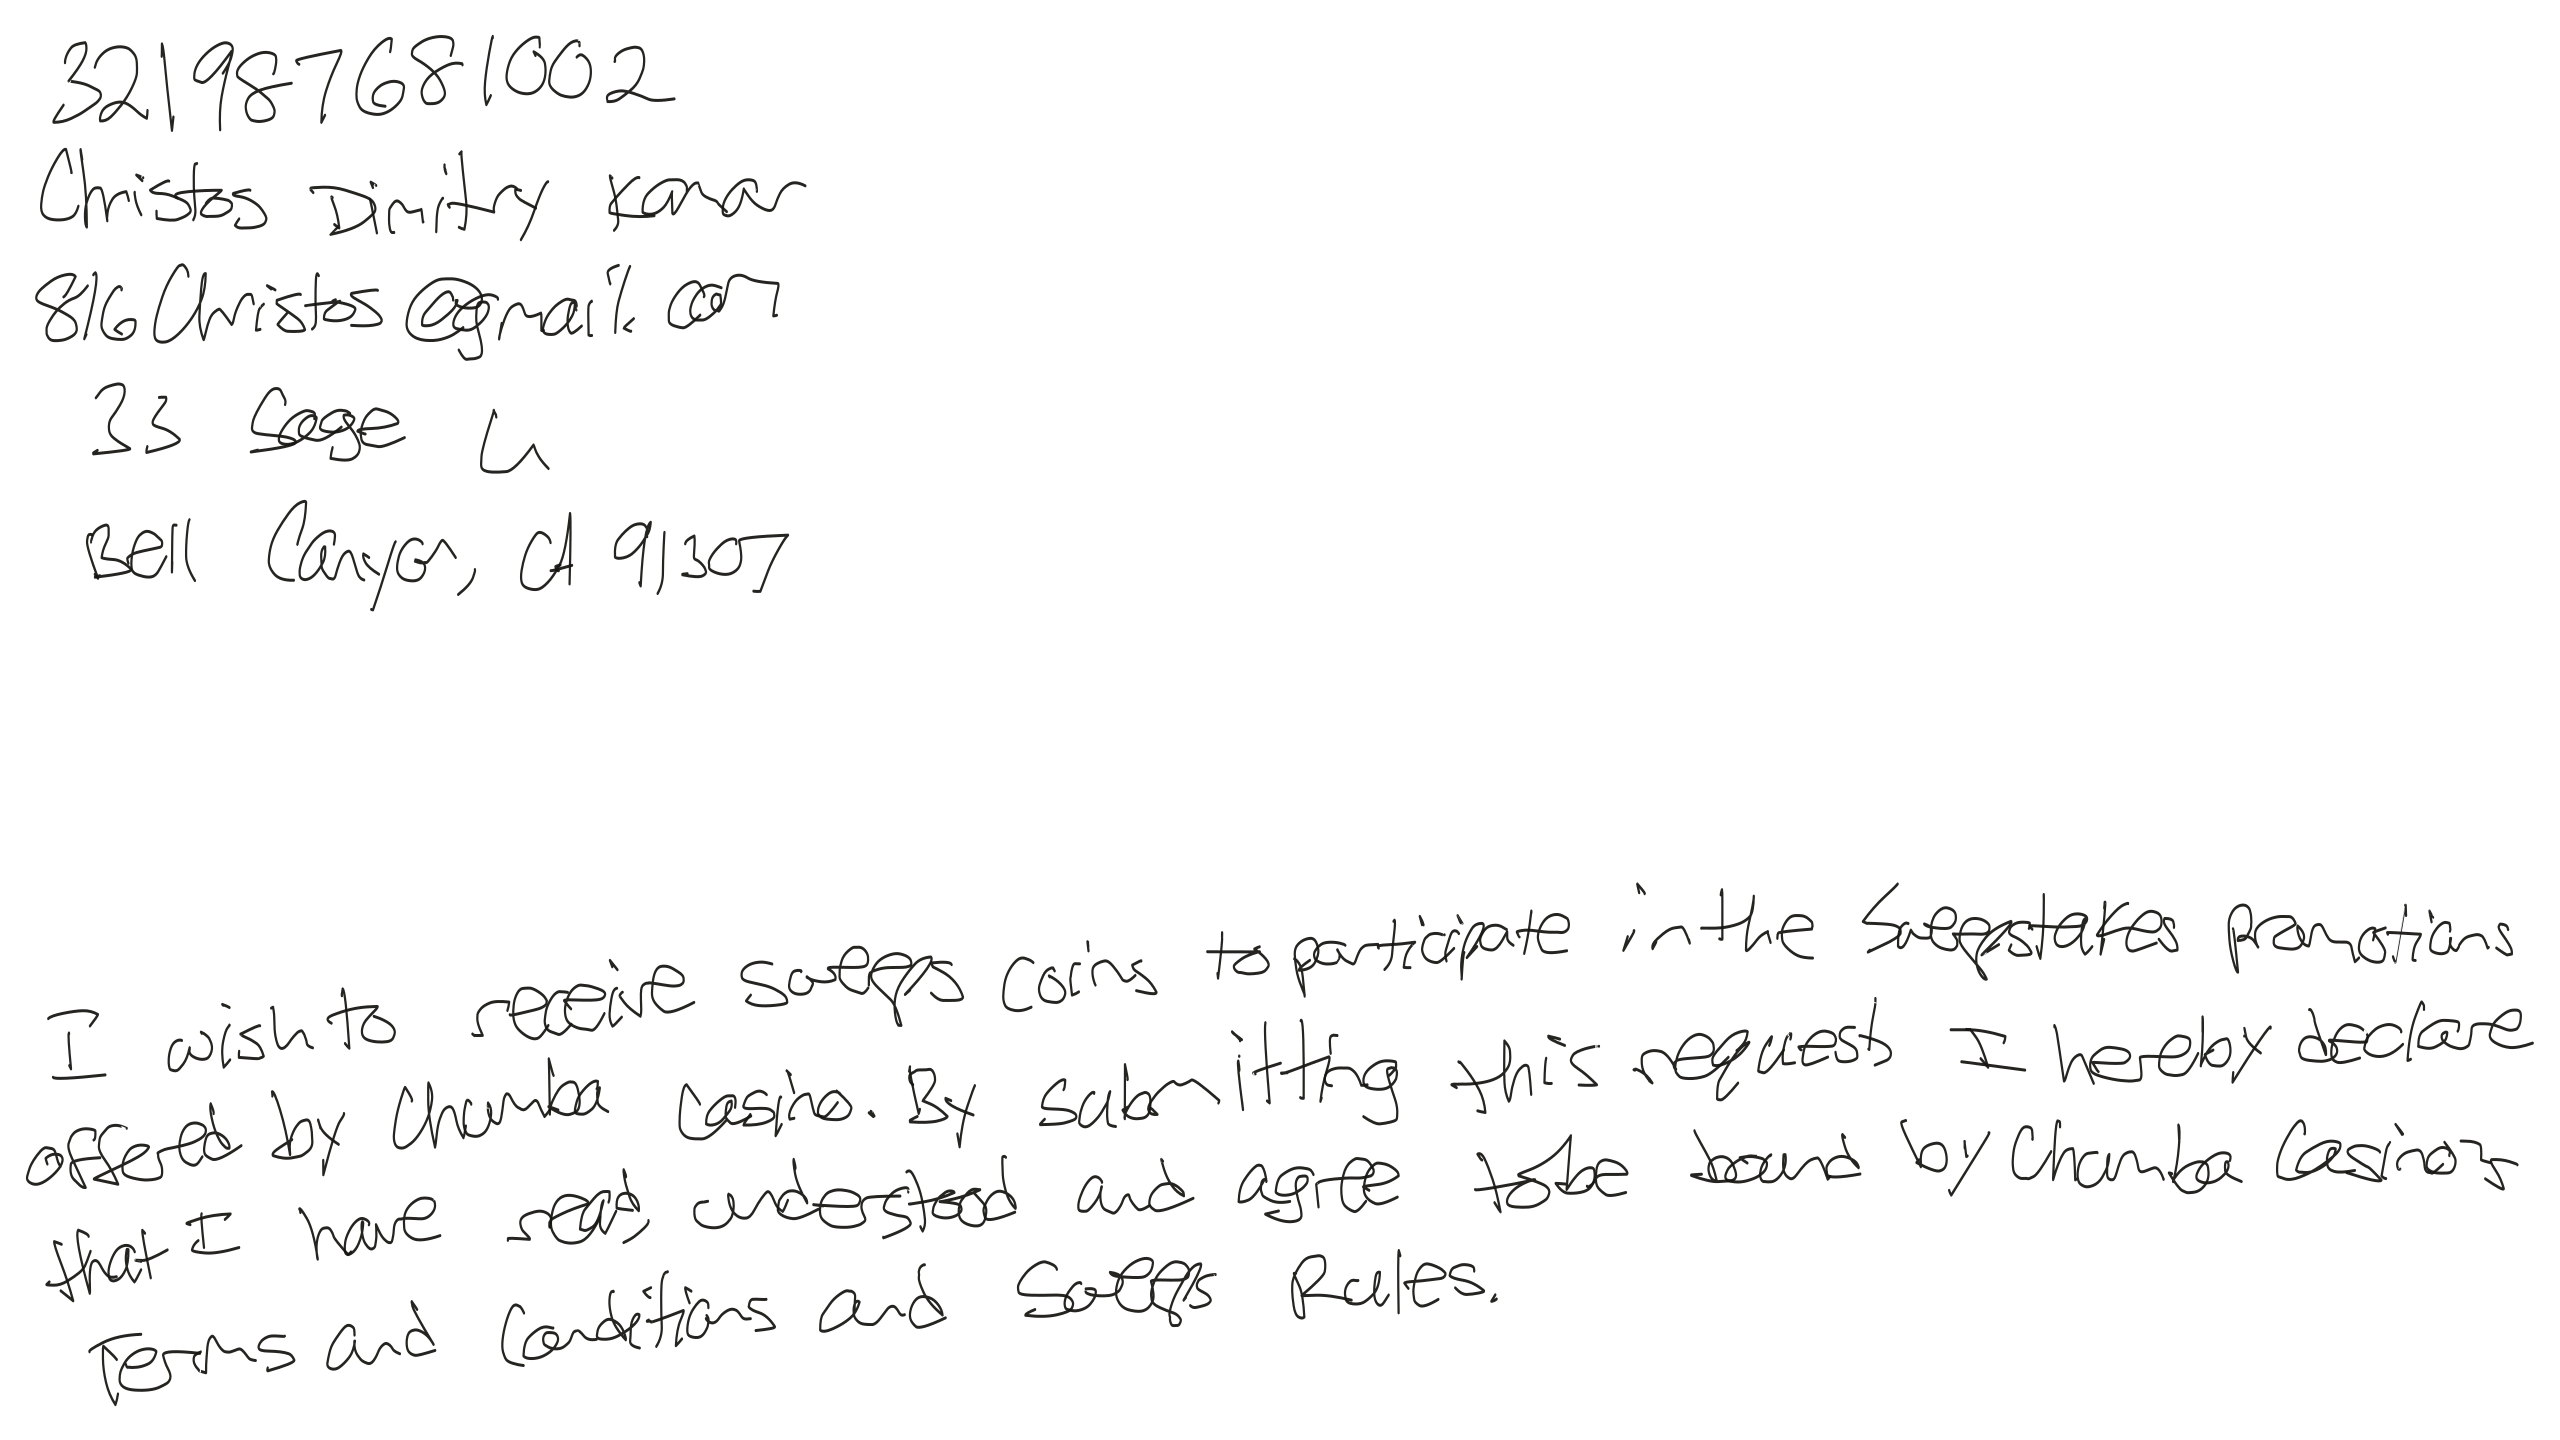 321987681002
Christos Dimitry Kamar
816Christos@gmail.com
33 Sage Ln
Bell Canyon, CA 91307
I wish to receive sweeps coins to participate in the Sweepstakes promotions
offered by Chumba Casino. By submitting this request I hereby declare
that I have read, understood and agree to be bound by Chumba Casino's
Terms and Conditions and Sweeps Rules.